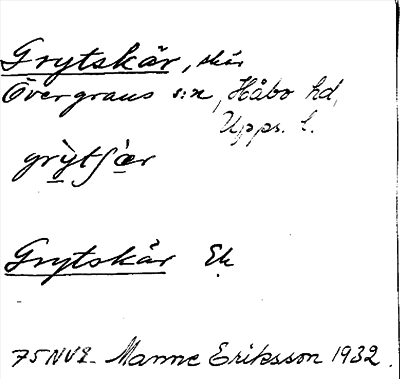 Grytskär, skär
Övergrans s:n, Håbo hd,
Upps. l.
grỳtʃæ̀r
Grytskär Ek.
75NV2. Manne Eriksson 1932.